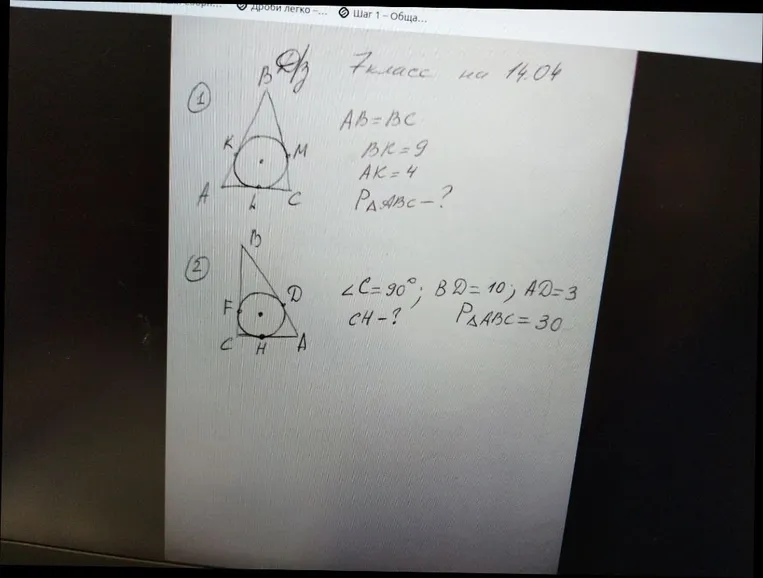 Дроби легко –...
Шаг 1 – Обща...
Д/з 7класс на 14.04
1
B
K
M
A
L
C
AB=BC
BK=9
AK=4
P△ABC–?
2
B
F
D
C
H
A
∠C=90°; BD=10; AD=3
CH–? P△ABC=30